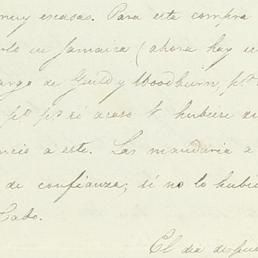 muy escasas. Para esta compra
en Jamaica (ahora hay
de Guild y Woodburn, pª
pª pª si acaso hubiere
a este. Las mandaria a
de confianza; si no lo hubi
Cabo.
El dia despu